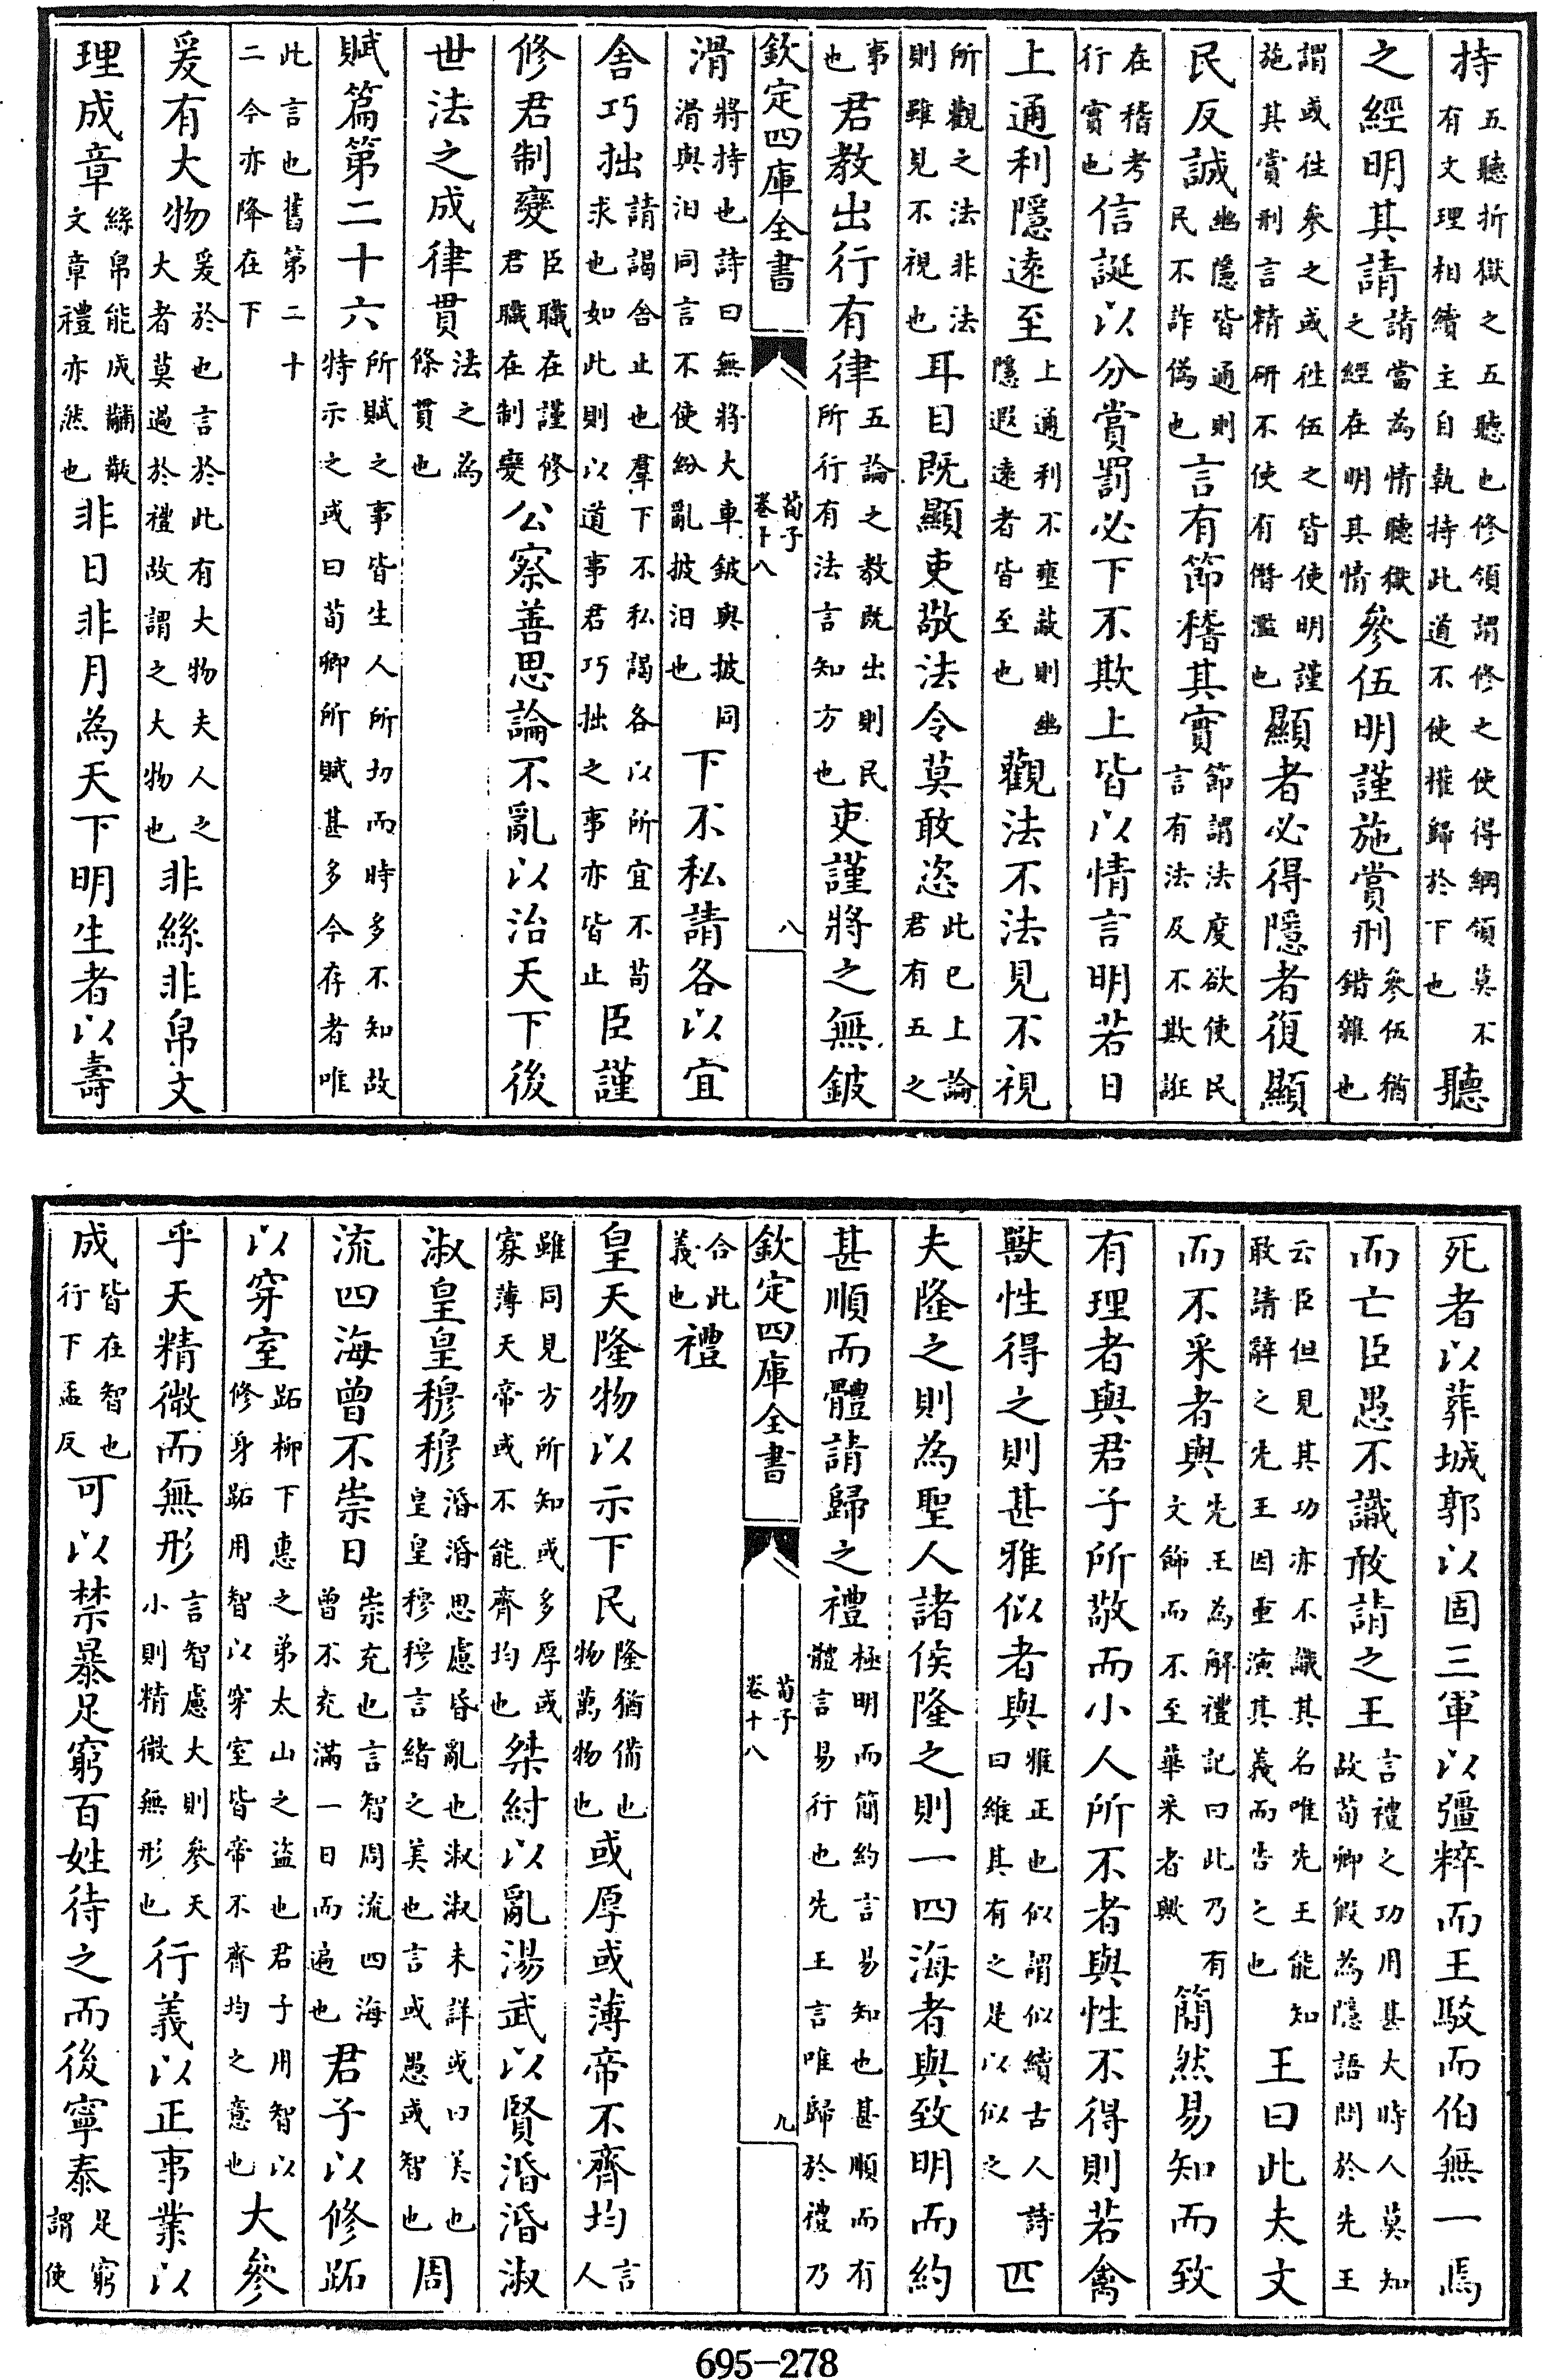 持五聽折獄之五聽也修領謂修之使得綱領莫不有文理相續主自執持此道不使權歸於下也聽
之經明其請請當為情聽獄之經在明其情參伍明謹施賞刑參伍猶錯雜也
謂或往參之或往伍之皆使明謹施其賞刑言精研不使有僭濫也顯者必得隱者復顯
民反誠幽隱皆通則民不詐偽也言有節稽其實節謂法度欲使民言有法及不欺誑
在稽考行實也信誕以分賞罰必下不欺上皆以情言明若日
上通利隱遠至上通利不壅蔽則幽隱遐遠者皆至也觀法不法見不視
所觀之法非法則雖見不視也耳目既顯吏敬法令莫敢恣此已上論君有五之
事也君教出行有律五論之教既出則民所行有法言知方也吏謹將之無鈹
欽定四庫全書 荀子 卷十八 八
滑將持也詩曰無將大車鈹與披同滑與汩同言不使紛亂披汩也下不私請各以宜
舍巧拙請謁舍止也羣下不私謁各以所宜不茍求也如此則以道事君巧拙之事亦皆止臣謹
修君制變臣職在謹修君職在制變公察善思論不亂以治天下後
世法之成律貫法之為條貫也
賦篇第二十六所賦之事皆生人所切而時多不知故特示之或曰荀卿所賦甚多今存者唯
此言也舊第二十二今亦降在下
爰有大物爰於也言於此有大物夫人之大者莫過於禮故謂之大物也非絲非帛文
理成章絲帛能成黼黻文章禮亦然也非日非月為天下明生者以壽
死者以葬城郭以固三軍以彊粹而王駁而伯無一焉
而亡臣愚不識敢請之王言禮之功用甚大時人莫知故荀卿假為隱語問於先王
云臣但見其功亦不識其名唯先王能知敢請解之先王因重演其義而告之也王曰此夫文
而不采者與先王為解禮記曰此乃有文飾而不至華采者歟簡然易知而致
有理者與君子所敬而小人所不者與性不得則若禽
獸性得之則甚雅似者與雅正也似謂似續古人詩曰維其有之是以似之匹
夫隆之則為聖人諸侯隆之則一四海者與致明而約
甚順而體請歸之禮極明而簡約言易知也甚順而有體言易行也先王言唯歸於禮乃
欽定四庫全書 荀子 卷十八 九
合此義也禮
皇天隆物以示下民隆猶備也物萬物也或厚或薄帝不齊均言人
雖同見方所知或多厚或寡薄天帝或不能齊均也桀紂以亂湯武以賢涽涽淑
淑皇皇穆穆涽涽思慮昏亂也淑淑未詳或曰美也皇皇穆穆言緒之美也言或愚或智也周
流四海曾不崇日崇充也言智周流四海曾不充滿一日而遍也君子以修跖
以穿室跖柳下惠之弟太山之盜也君子用智以修身跖用智以穿室皆帝不齊均之意也大參
乎天精微而無形言智慮大則參天小則精微無形也行義以正事業以
成皆在智也行下孟反可以禁暴足窮百姓待之而後寧泰足窮謂使
695-278